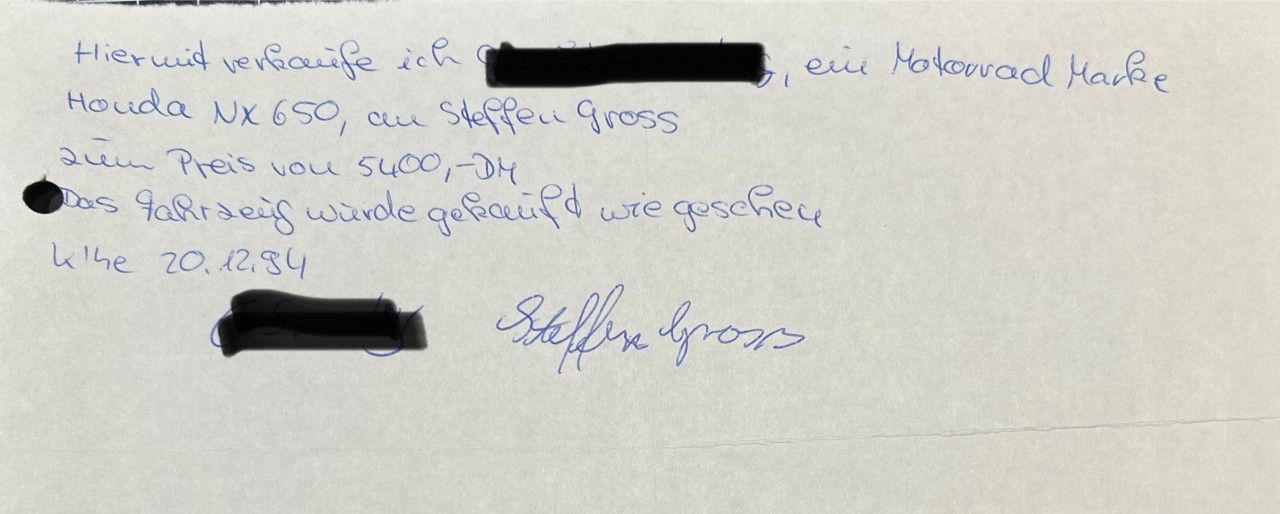 Hiermit verkaufe ich , ein Motorrad Marke
Honda NX 650, an Steffen Gross
zum Preis von 5400,-DM
Das Fahrzeug wurde gekauft wie gesehen
K'he 20.12.94
Steffen Gross